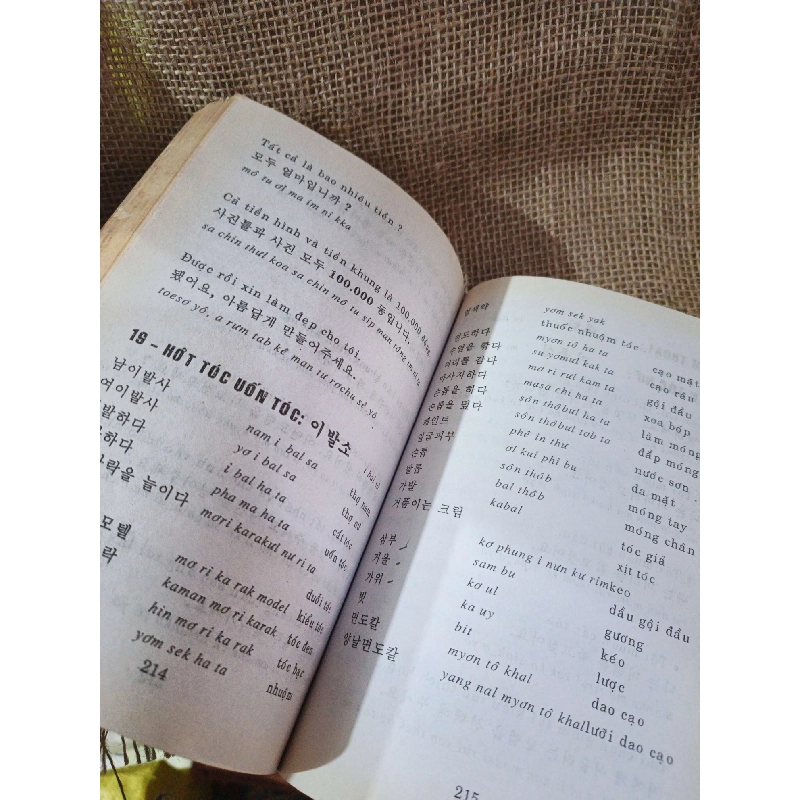 Tất cả là bao nhiêu tiền ?
모두 얼마입니까 ?
mô tu ơl ma im ni kka
Cả tiền hình và tiền khung là 100.000 đồng
사진틀과 사진 모두 100.000 동입니다.
sa chin thưl koa sa chin mô tu síp man tông im ni ta
Được rồi xin làm đẹp cho tôi.
됐어요, 아름답게 만들어주세요.
toesơ yô, a rưm tab kê man tư rơchu sê yô
19 - HỚT TÓC UỐN TÓC: 이발소
i bal sô
남이발사 nam i bal sa thợ nam
여이발사 yơ i bal sa thợ nữ
발하다 i bal ha ta cắt tóc
하다 pha ma ha ta uốn tóc
락을 늘이다 mơri karakưl nư ri ta duỗi tóc
모델 mơ ri ka rak model kiểu tóc
락 kaman mơ ri karak tóc đen
hin mơ ri ka rak tóc bạc
yơm sek ha ta nhuộm
214
염색약 yơm sek yak thuốc nhuộm tóc
면도하다 myơn tô ha ta cạo mặt
수염을 깎다 su yơmưl kak ta cạo râu
머리를 감다 mơ ri rưl kam ta gội đầu
마사지하다 musa chi ha ta xoa bóp
손톱을 하다 sôn thôbưl ha ta làm móng
손톱을 덮다 sôn thôbưl tơb ta đắp móng
페인트 phê in thư nước sơn
얼굴피부 ơl kul phi bu da mặt
손톱 sôn thôb móng tay
발톱 bal thôb móng chân
가발 kabal tóc giả
거품이는 크림 kơ phung i nưn kư rim keo xịt tóc
삼부 sam bu dầu gội đầu
거울 kơ ul gương
가위 ka uy kéo
빗 bit lược
면도칼 myơn tô khal dao cạo
양날면도칼 yang nal myơn tô khal lưỡi dao cạo
215